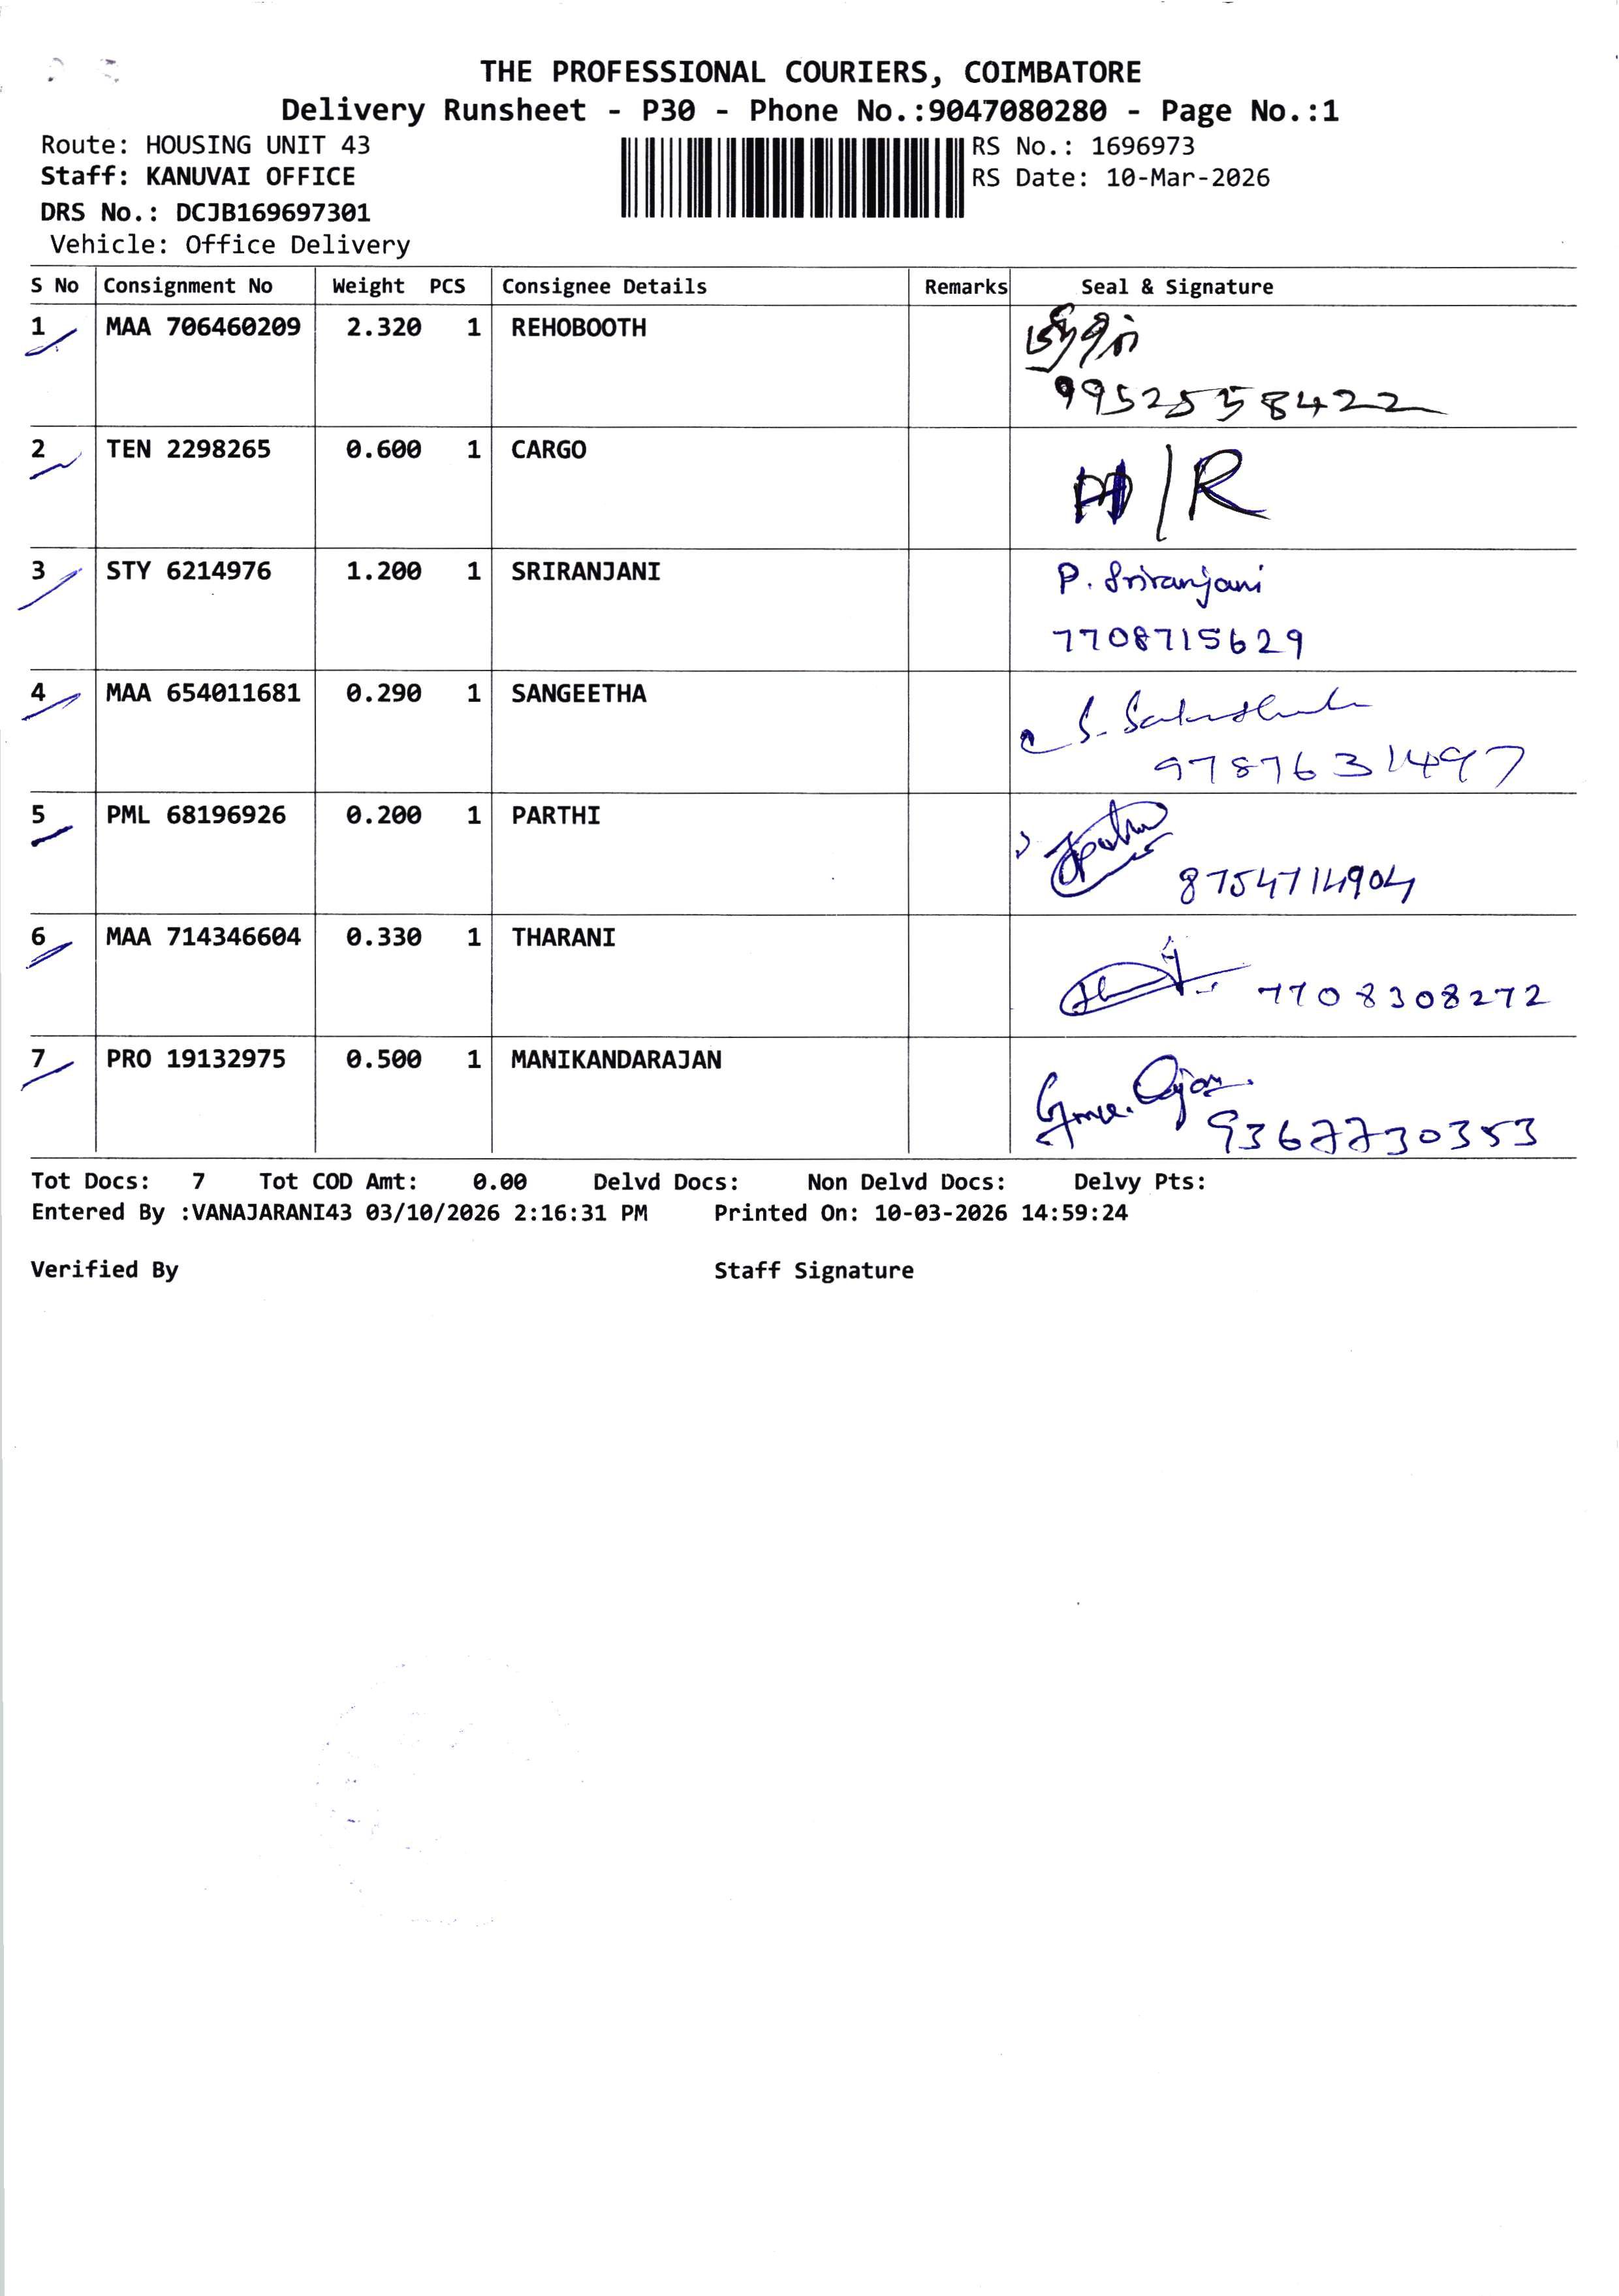 THE PROFESSIONAL COURIERS, COIMBATORE
Delivery Runsheet - P30 - Phone No.:9047080280 - Page No.:1
Route: HOUSING UNIT 43
RS No.: 1696973
Staff: KANUVAI OFFICE
RS Date: 10-Mar-2026
DRS No.: DCJB169697301
Vehicle: Office Delivery
S No Consignment No Weight PCS Consignee Details Remarks Seal & Signature
1 MAA 706460209 2.320 1 REHOBOOTH
9952558422
2 TEN 2298265 0.600 1 CARGO
/R
3 STY 6214976 1.200 1 SRIRANJANI P. Sriranjani
7708715629
4 MAA 654011681 0.290 1 SANGEETHA
9787631497
5 PML 68196926 0.200 1 PARTHI
8754714904
6 MAA 714346604 0.330 1 THARANI
7708308272
7 PRO 19132975 0.500 1 MANIKANDARAJAN
9367730353
Tot Docs: 7 Tot COD Amt: 0.00 Delvd Docs: Non Delvd Docs: Delvy Pts:
Entered By :VANAJARANI43 03/10/2026 2:16:31 PM Printed On: 10-03-2026 14:59:24
Verified By Staff Signature